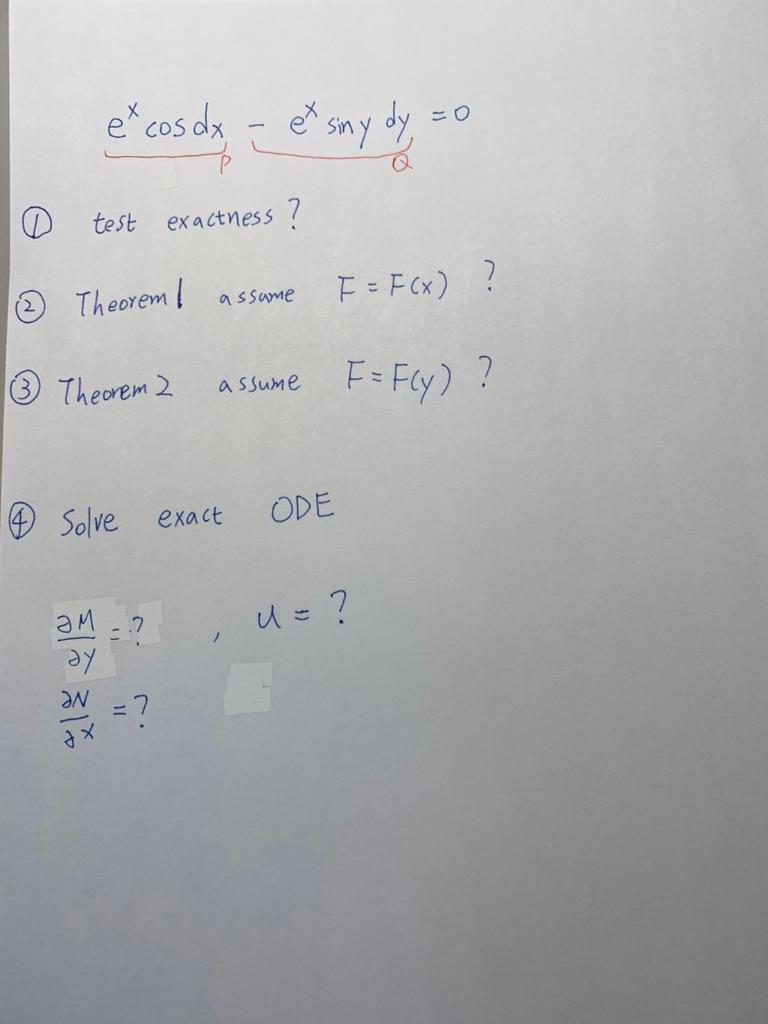 eˣ cos dx − eˣ sin y dy = 0
P Q
① test exactness?
② Theorem 1 assume F = F(x) ?
③ Theorem 2 assume F = F(y) ?
④ Solve exact ODE
∂M/∂y = ? , u = ?
∂N/∂x = ?